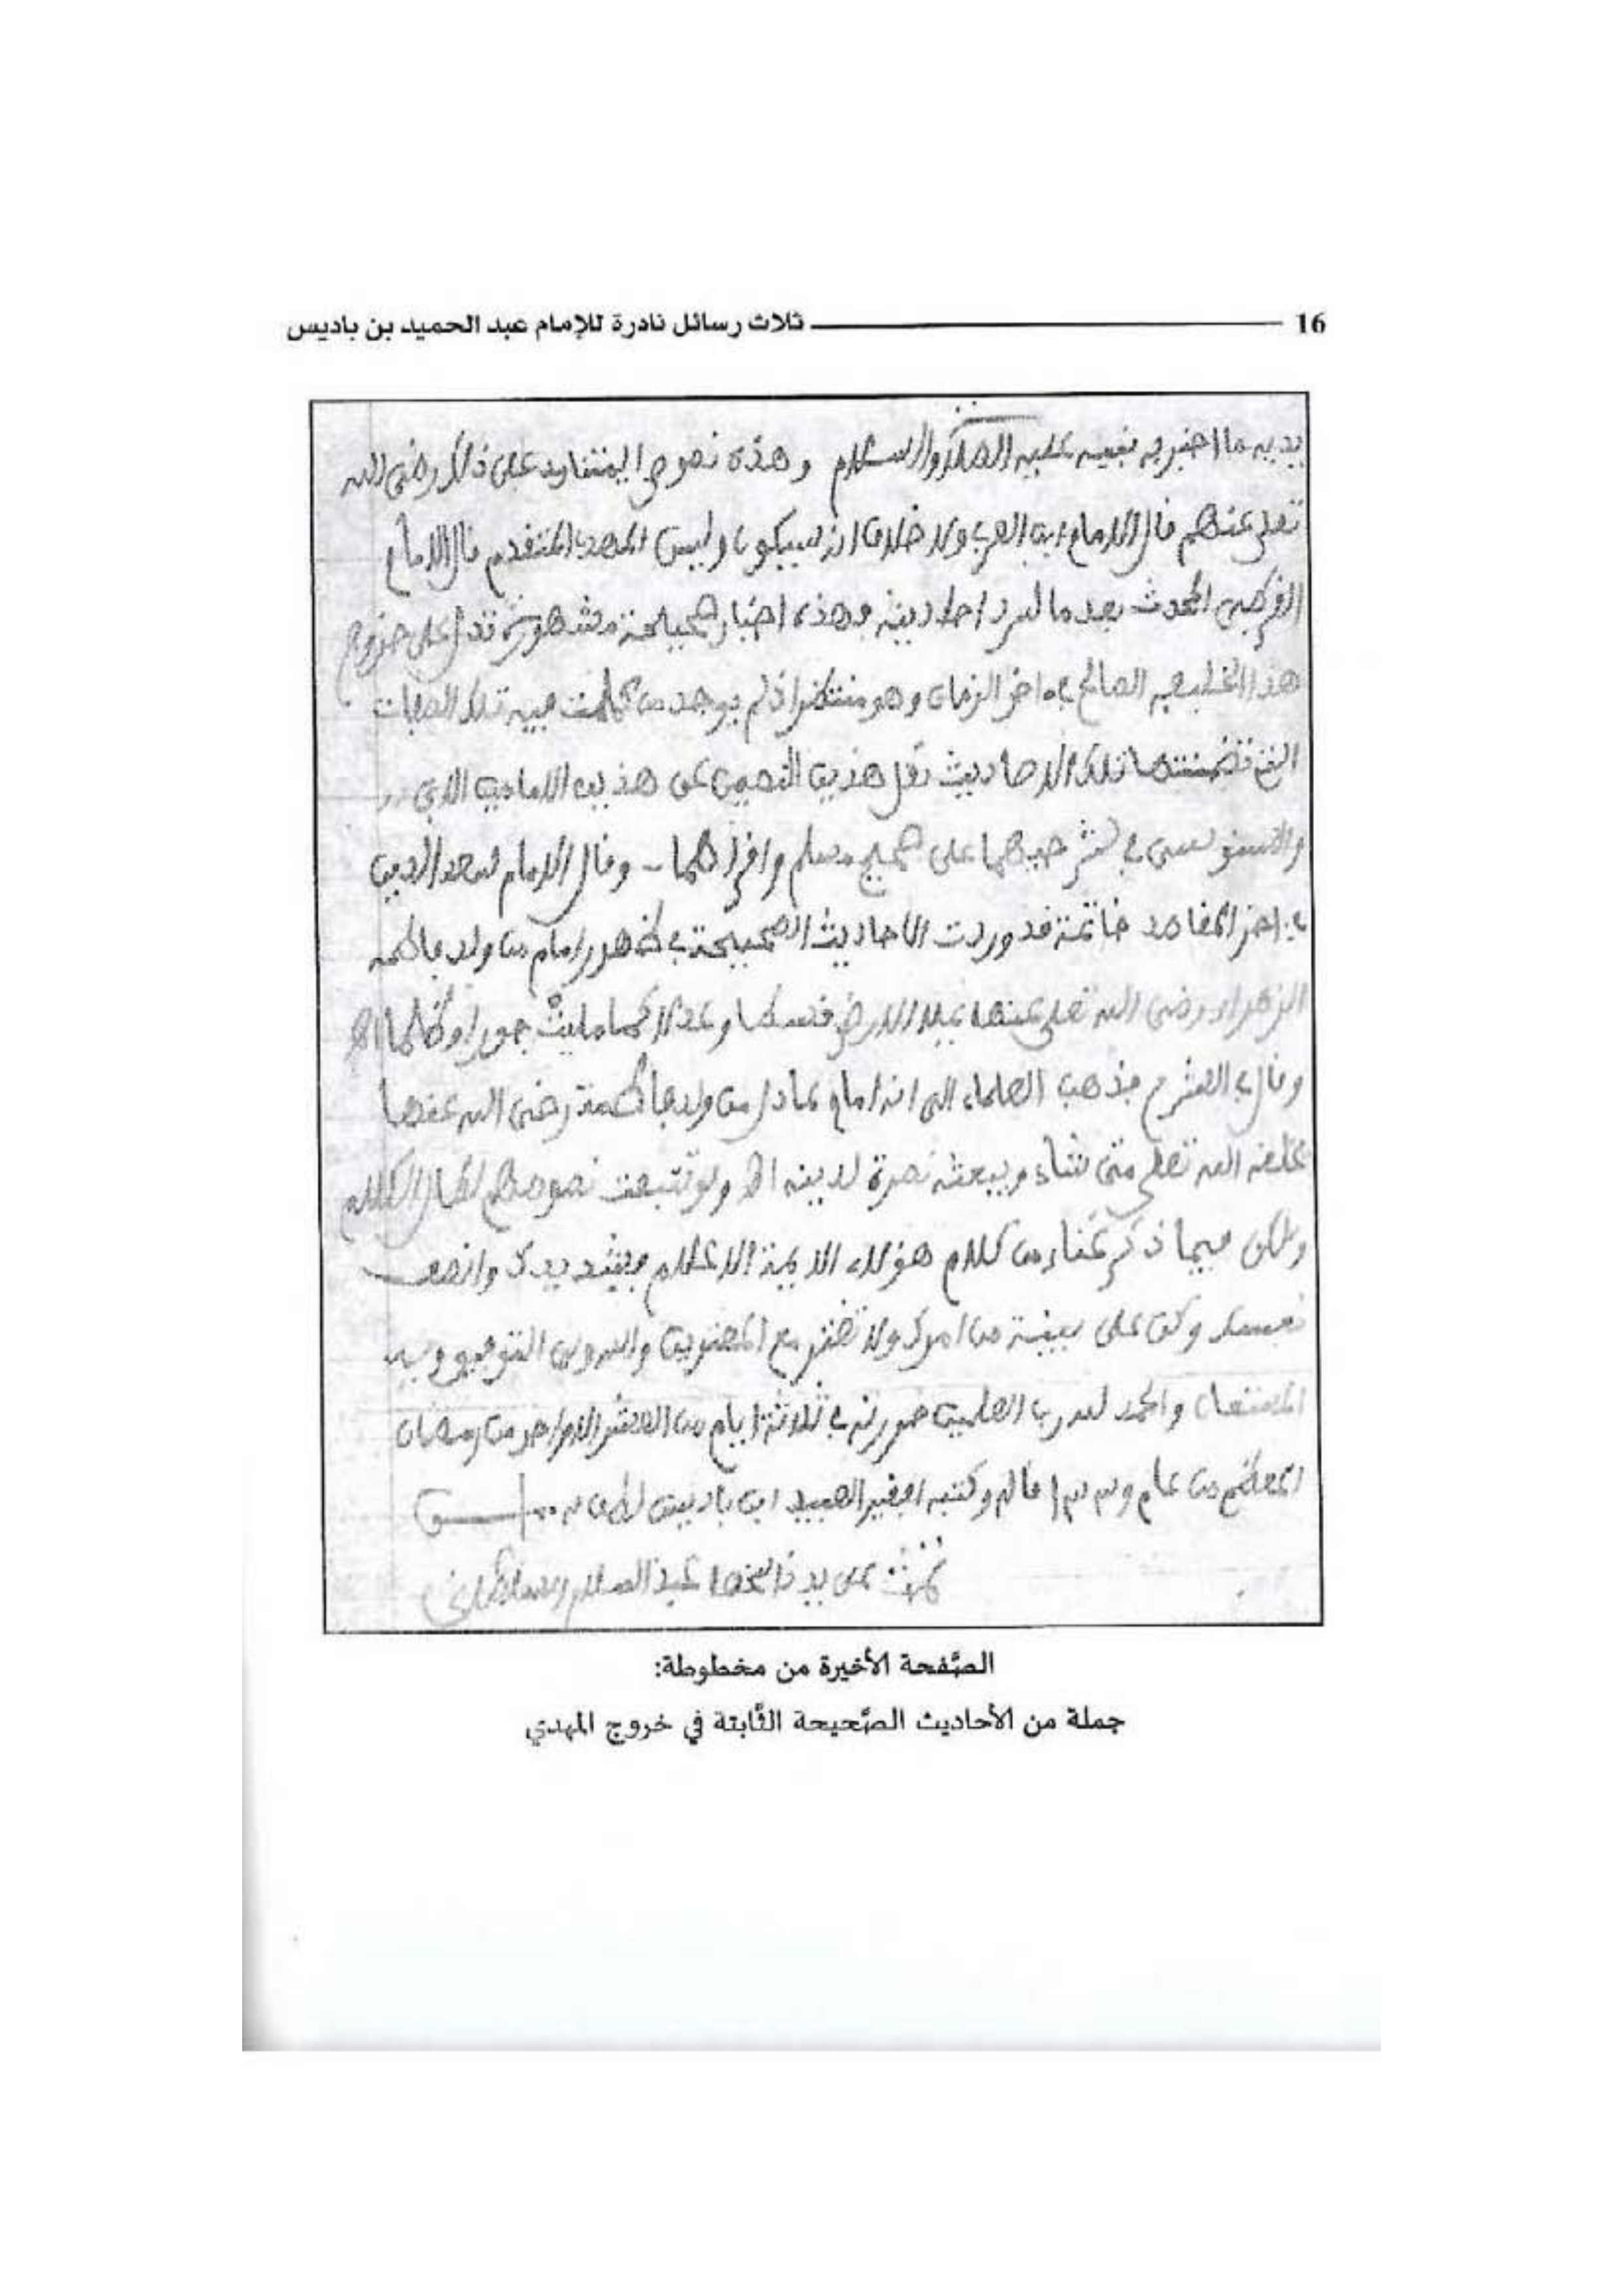 16 ثلاث رسائل نادرة للإمام عبد الحميد بن باديس
به ما اخبر به نبيه عليه الصلاة والسلام وهذه نصوص ايمتنا على ذلك رضي الله
تعلى عنهم قال الامام ابن العربي ولا خلاف انه سيكون وليس المهدي المتقدم قال الامام
القرطبي المحدث بعد ما سرد احاديثه وهذه اخبار صحيحة مشهورة تدل على خروج
هذا الخليفه الصالح في اخر الزمان وهو منتظر اذ لم يوجد من كملت فيه تلك الصفات
التي تضمنتها تلك الاحاديث نقل هذين النصين عن هذين الامامين الابي
والسنوسي في شرحيهما على صحيح مسلم واقراهما وقال الامام سعد الدين
في اخر المقاصد خاتمة قد وردت الاحاديث الصحيحة في ظهور امام من ولد فاطمه
الزهراء رضي الله تعلى عنها يملا الارض قسطا وعدلا كما مليت جورا وظلما اهـ
وقال في الشرح فذهب العلماء الى انه امام عادل من ولد فاطمة رضي الله عنها
يخلقه الله تعلى متى شاء ويبعثه نصرة لدينه اهـ ولو تتبعت نصوصهم لطال الكلام
ولكن فيما ذكر غناء من كلام هؤلاء الايمة الاعلام فشد يدك وانصف
نفسك وكن على بينة من امرك ولا تغتر مع المغترين والله ولي التوفيق وبه
المستعان والحمد لله رب العلمين حررته في ثلاثة ايام من العشر الاواخر من رمضان
المعظم من عام قاله وكتبه افقر العبيد ابن باديس
تمت على يد ناسخها عبد السلام
الصَّفحة الأخيرة من مخطوطة:
جملة من الأحاديث الصَّحيحة الثَّابتة في خروج المهدي